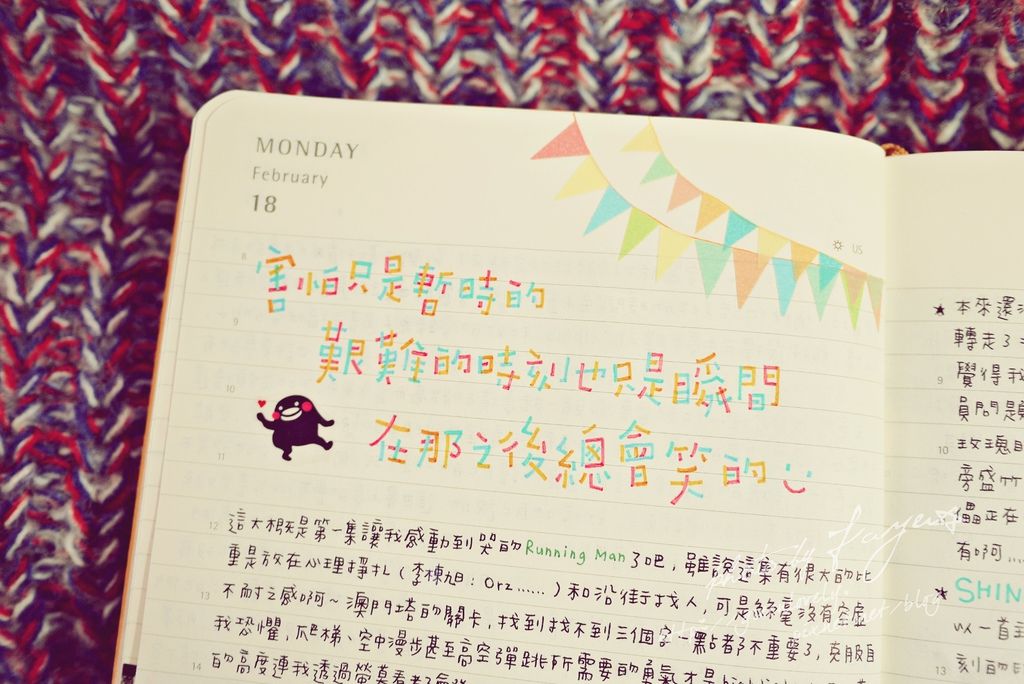 MONDAY
February
18
US
8
害怕只是暫時的
9
艱難的時刻也只是瞬間
10
在那之後總會笑的
11
12
這大概是第一集讓我感動到哭的Running Man了吧，雖說這集有很大的比
重是放在心理掙扎（李棟旭：Orz......）和沿街找人，可是絲毫沒有空虛
13
不耐之感啊～澳門塔的關卡，找到找不到三個字一點都不重要了，克服自
我恐懼，爬梯、空中漫步甚至高空彈跳所需要的勇氣才是
14
的高度連我透過螢幕看者了
★本來還
轉走了
9
覺得我
員問是
10
玫瑰
旁盛竹
儡正在
有啊....
★SHIN
以一首
13
刻的
photo by Kayews
lovely.
/blog